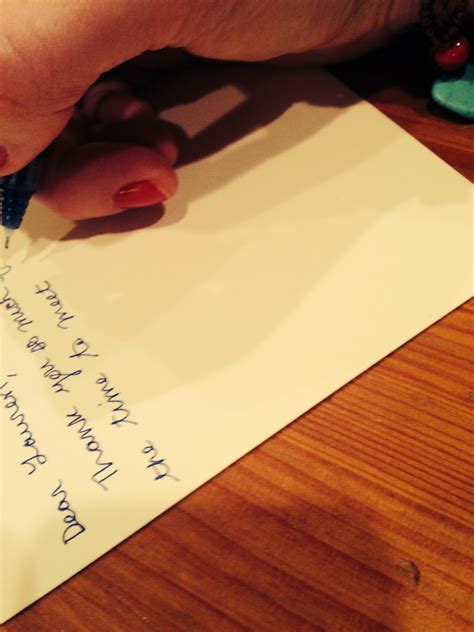 Dear Lauren,
Thank you so much
the time to meet